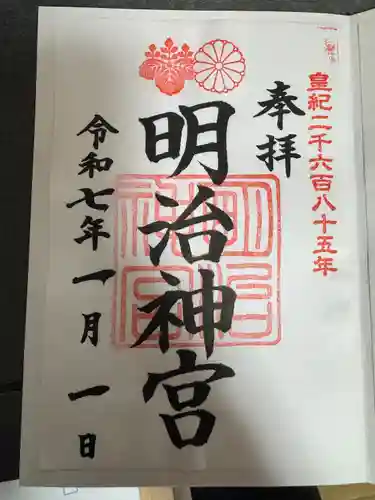 皇紀二千六百八十五年
奉拝
明治神宮
明治神宮
令和七年一月一日